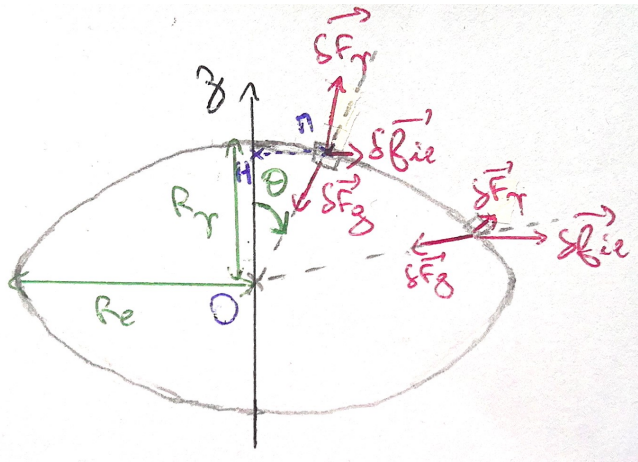 δF⃗r
z
r
δf⃗ie
H
θ
δF⃗g
Rr
δF⃗r
δf⃗ie
δF⃗g
Re
O